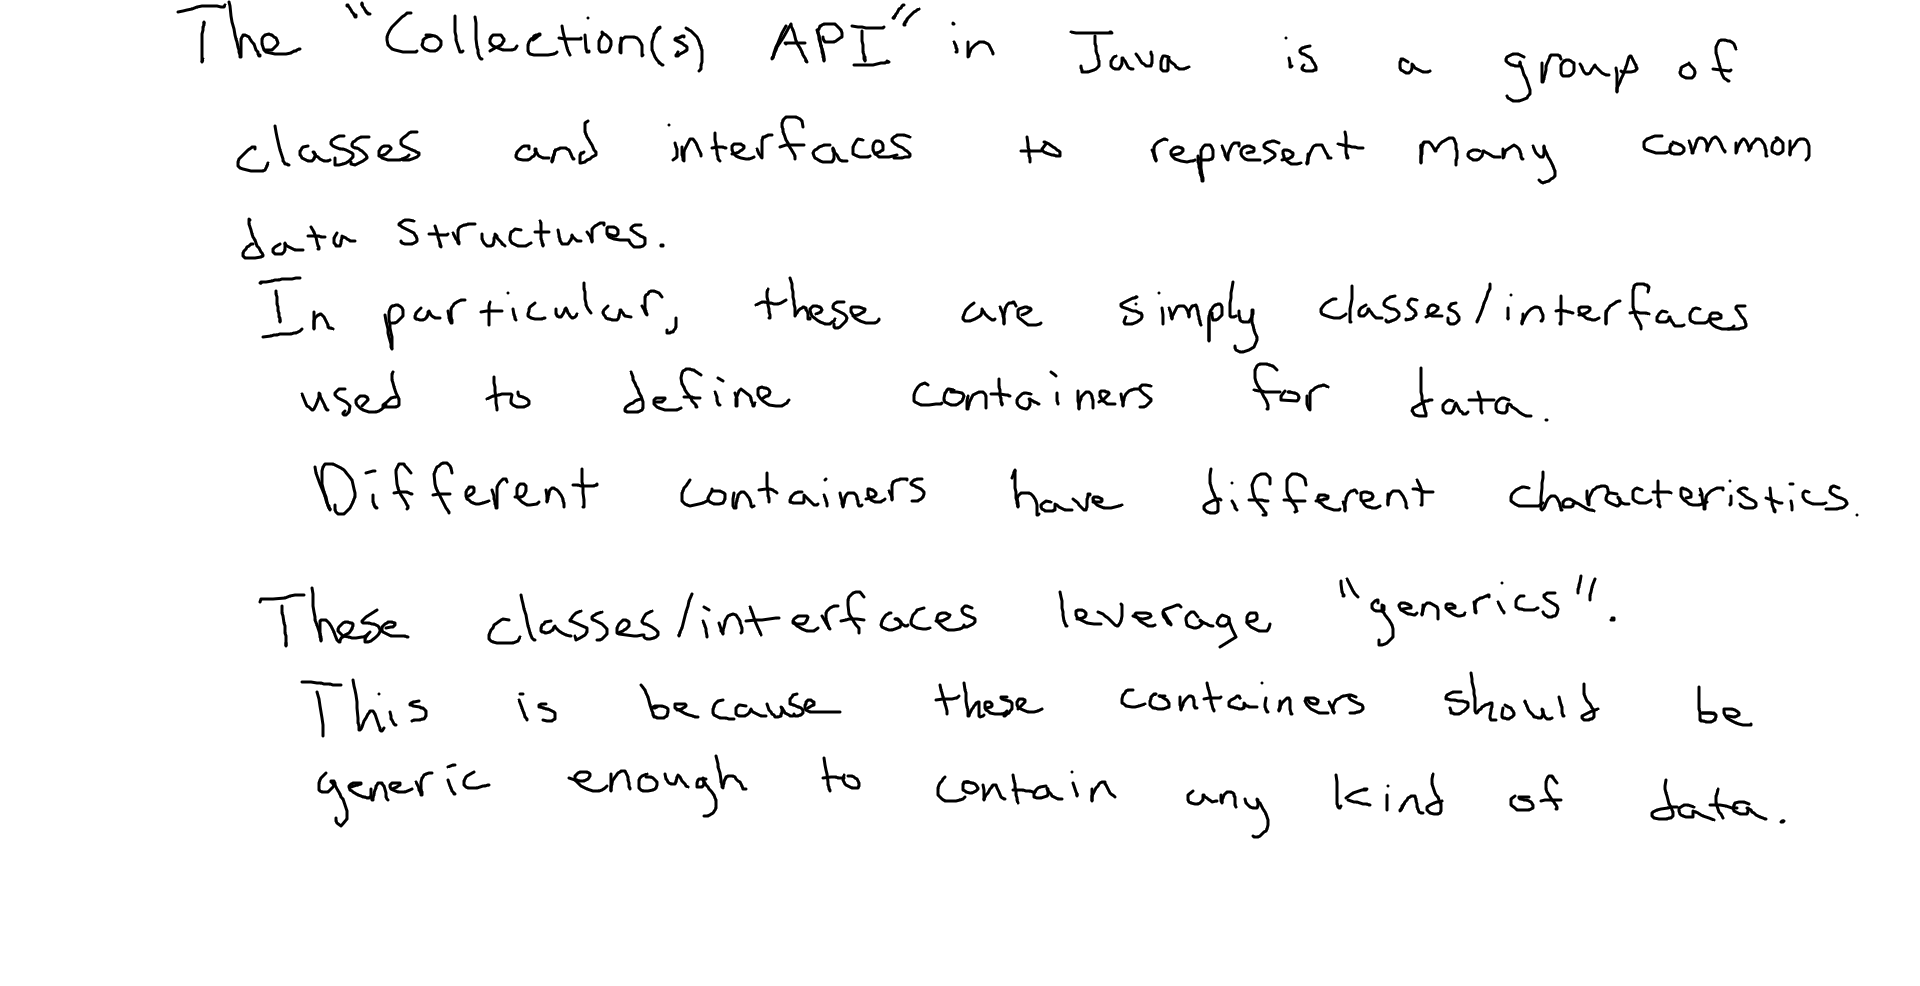 The "Collection(s) API" in Java is a group of
classes and interfaces to represent many common
data structures.
In particular, these are simply classes/interfaces
used to define containers for data.
Different containers have different characteristics.
These classes/interfaces leverage "generics".
This is because these containers should be
generic enough to contain any kind of data.